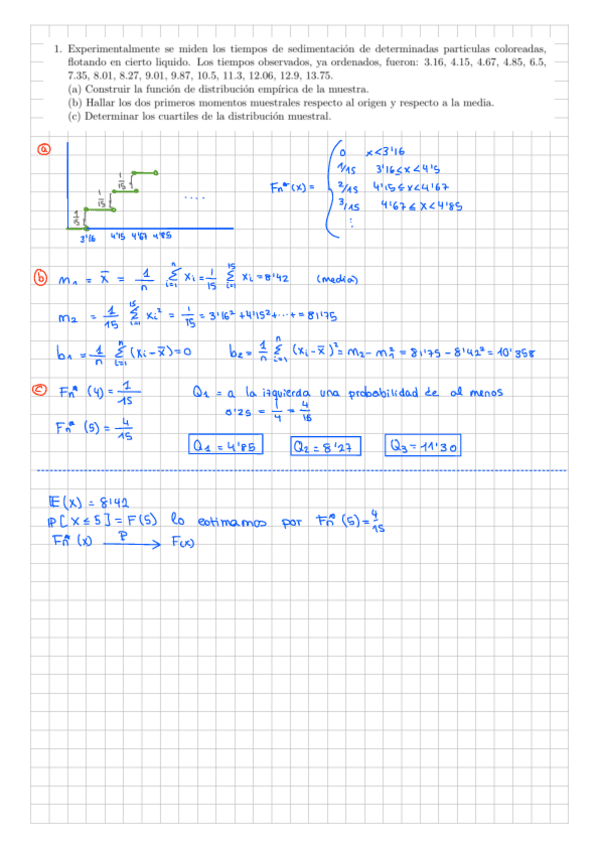 1. Experimentalmente se miden los tiempos de sedimentación de determinadas particulas coloreadas,
flotando en cierto liquido. Los tiempos observados, ya ordenados, fueron: 3.16, 4.15, 4.67, 4.85, 6.5,
7.35, 8.01, 8.27, 9.01, 9.87, 10.5, 11.3, 12.06, 12.9, 13.75.
(a) Construir la función de distribución empírica de la muestra.
(b) Hallar los dos primeros momentos muestrales respecto al origen y respecto a la media.
(c) Determinar los cuartiles de la distribución muestral.
a
1/15
1/15
1/15
....
3'16 4'15 4'67 4'85
Fn*(x) = { 0 x<3'16
1/15 3'16≤x<4'5
2/15 4'15≤x<4'67
3/15 4'67≤x<4'85
⋮
b m1 = x̄ = 1/n Σ(i=1..n) xi = 1/15 Σ(i=1..15) xi = 8'42 (media)
m2 = 1/15 Σ(i=1..15) xi² = 1/15 = 3'16² + 4'15² + ... + = 81'75
b1 = 1/n Σ(i=1..n) (xi - x̄) = 0 b2 = 1/n Σ(i=1..n) (xi - x̄)² = m2 - m1² = 81'75 - 8'42² = 10'858
c Fn*(4) = 1/15 Q1 = a la izquierda una probabilidad de al menos
0'25 = 1/4 = 4/15
Fn*(5) = 4/15
Q1 = 4'85 Q2 = 8'27 Q3 = 11'30
E(x) = 8'42
P[X ≤ 5] = F(5) lo estimamos por Fn*(5) = 4/15
Fn*(x) →P F(x)